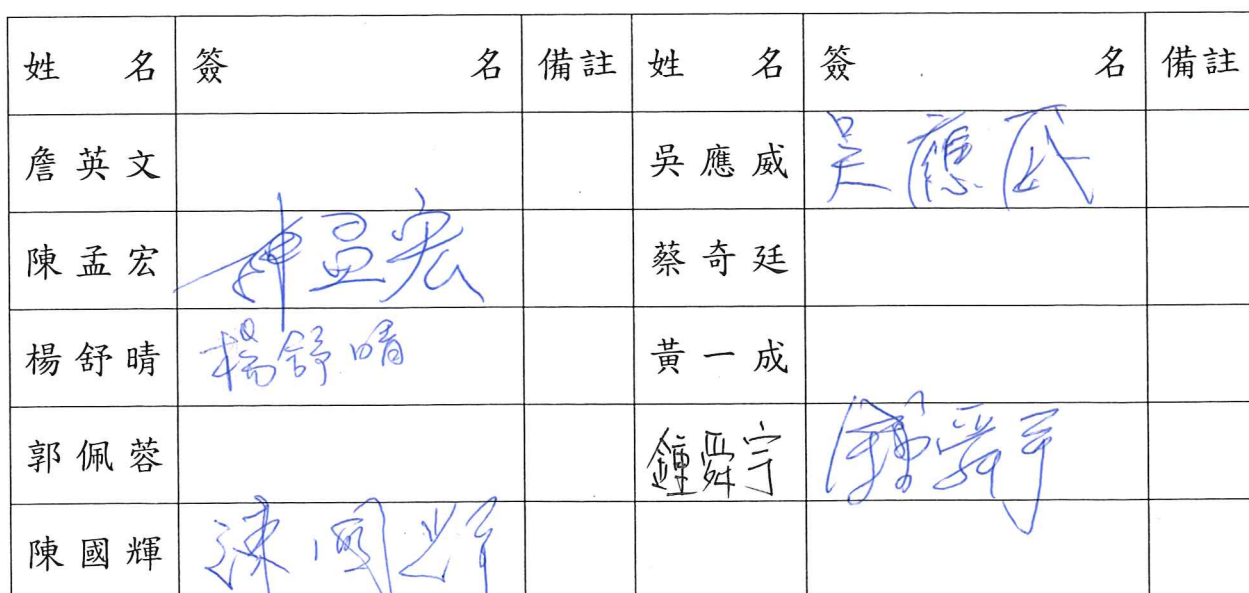 姓名 簽名 備註 姓名 簽名 備註
詹英文 吳應威 吳應威
陳孟宏 陳孟宏 蔡奇廷
楊舒晴 楊舒晴 黃一成
郭佩蓉 鐘舜宇 鐘舜宇
陳國輝 陳國輝